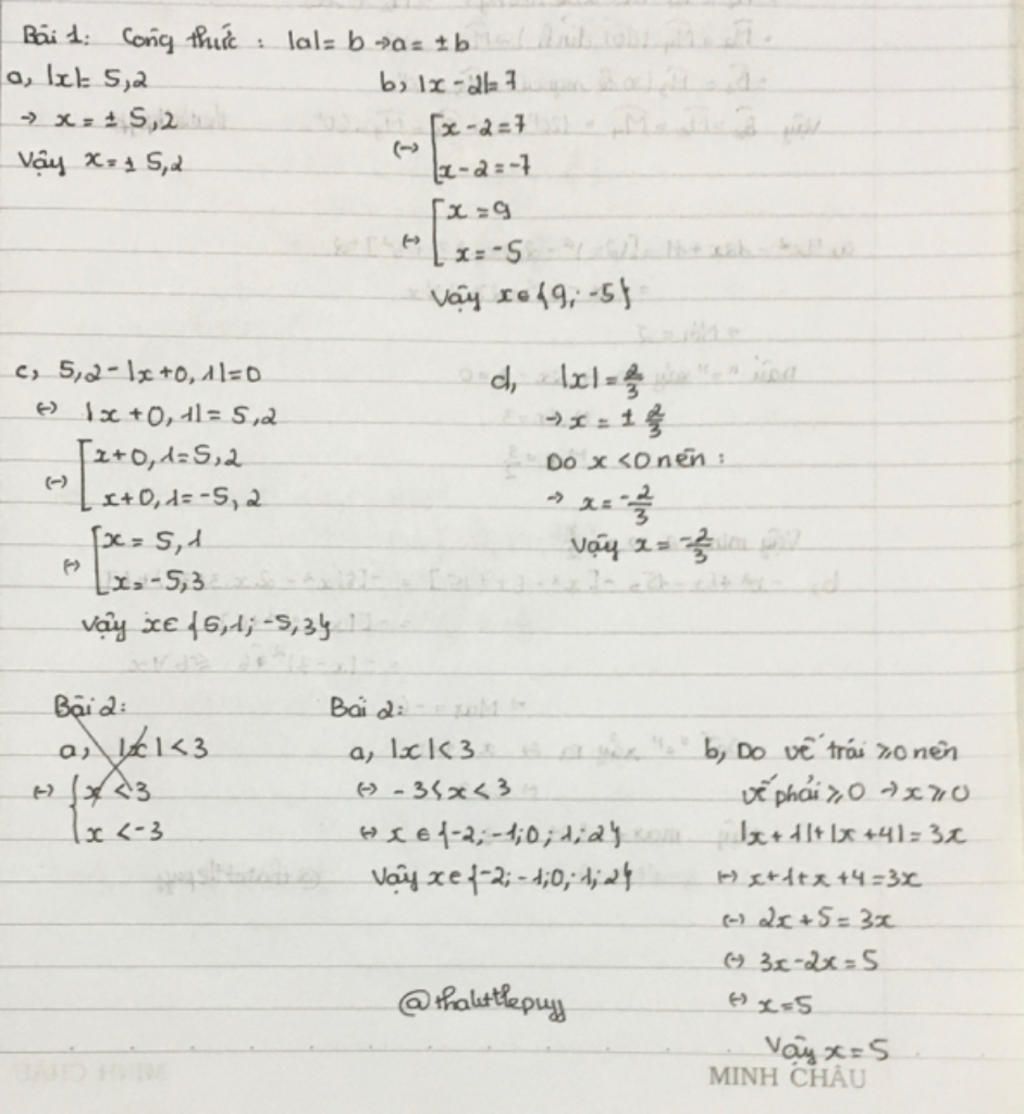 Bài 1: Công thức: |a| = b → a = ± b
a, |x| = 5,2
→ x = ± 5,2
Vậy x = ± 5,2
b, |x - 2| = 7
(→) [x - 2 = 7
x - 2 = -7
(→) [x = 9
x = -5
Vậy x ∈ {9; -5}
c, 5,2 - |x + 0,1| = 0
(→) |x + 0,1| = 5,2
(→) [x + 0,1 = 5,2
x + 0,1 = -5,2
(→) [x = 5,1
x = -5,3
Vậy x ∈ {5,1; -5,3}
d, |x| = 2/3
→ x = ± 2/3
Do x < 0 nên:
→ x = -2/3
Vậy x = -2/3
Bài 2:
a, |x| < 3
(→) {x < 3
x < -3
Bài 2:
a, |x| < 3
(→) -3 < x < 3
↔ x ∈ {-2; -1; 0; 1; 2}
Vậy x ∈ {-2; -1; 0; 1; 2}
b, Do vế trái ≥ 0 nên
vế phải ≥ 0 → x ≥ 0
|x + 1| + |x + 4| = 3x
↔ x + 1 + x + 4 = 3x
(→) 2x + 5 = 3x
(→) 3x - 2x = 5
(→) x = 5
Vậy x = 5
MINH CHÂU